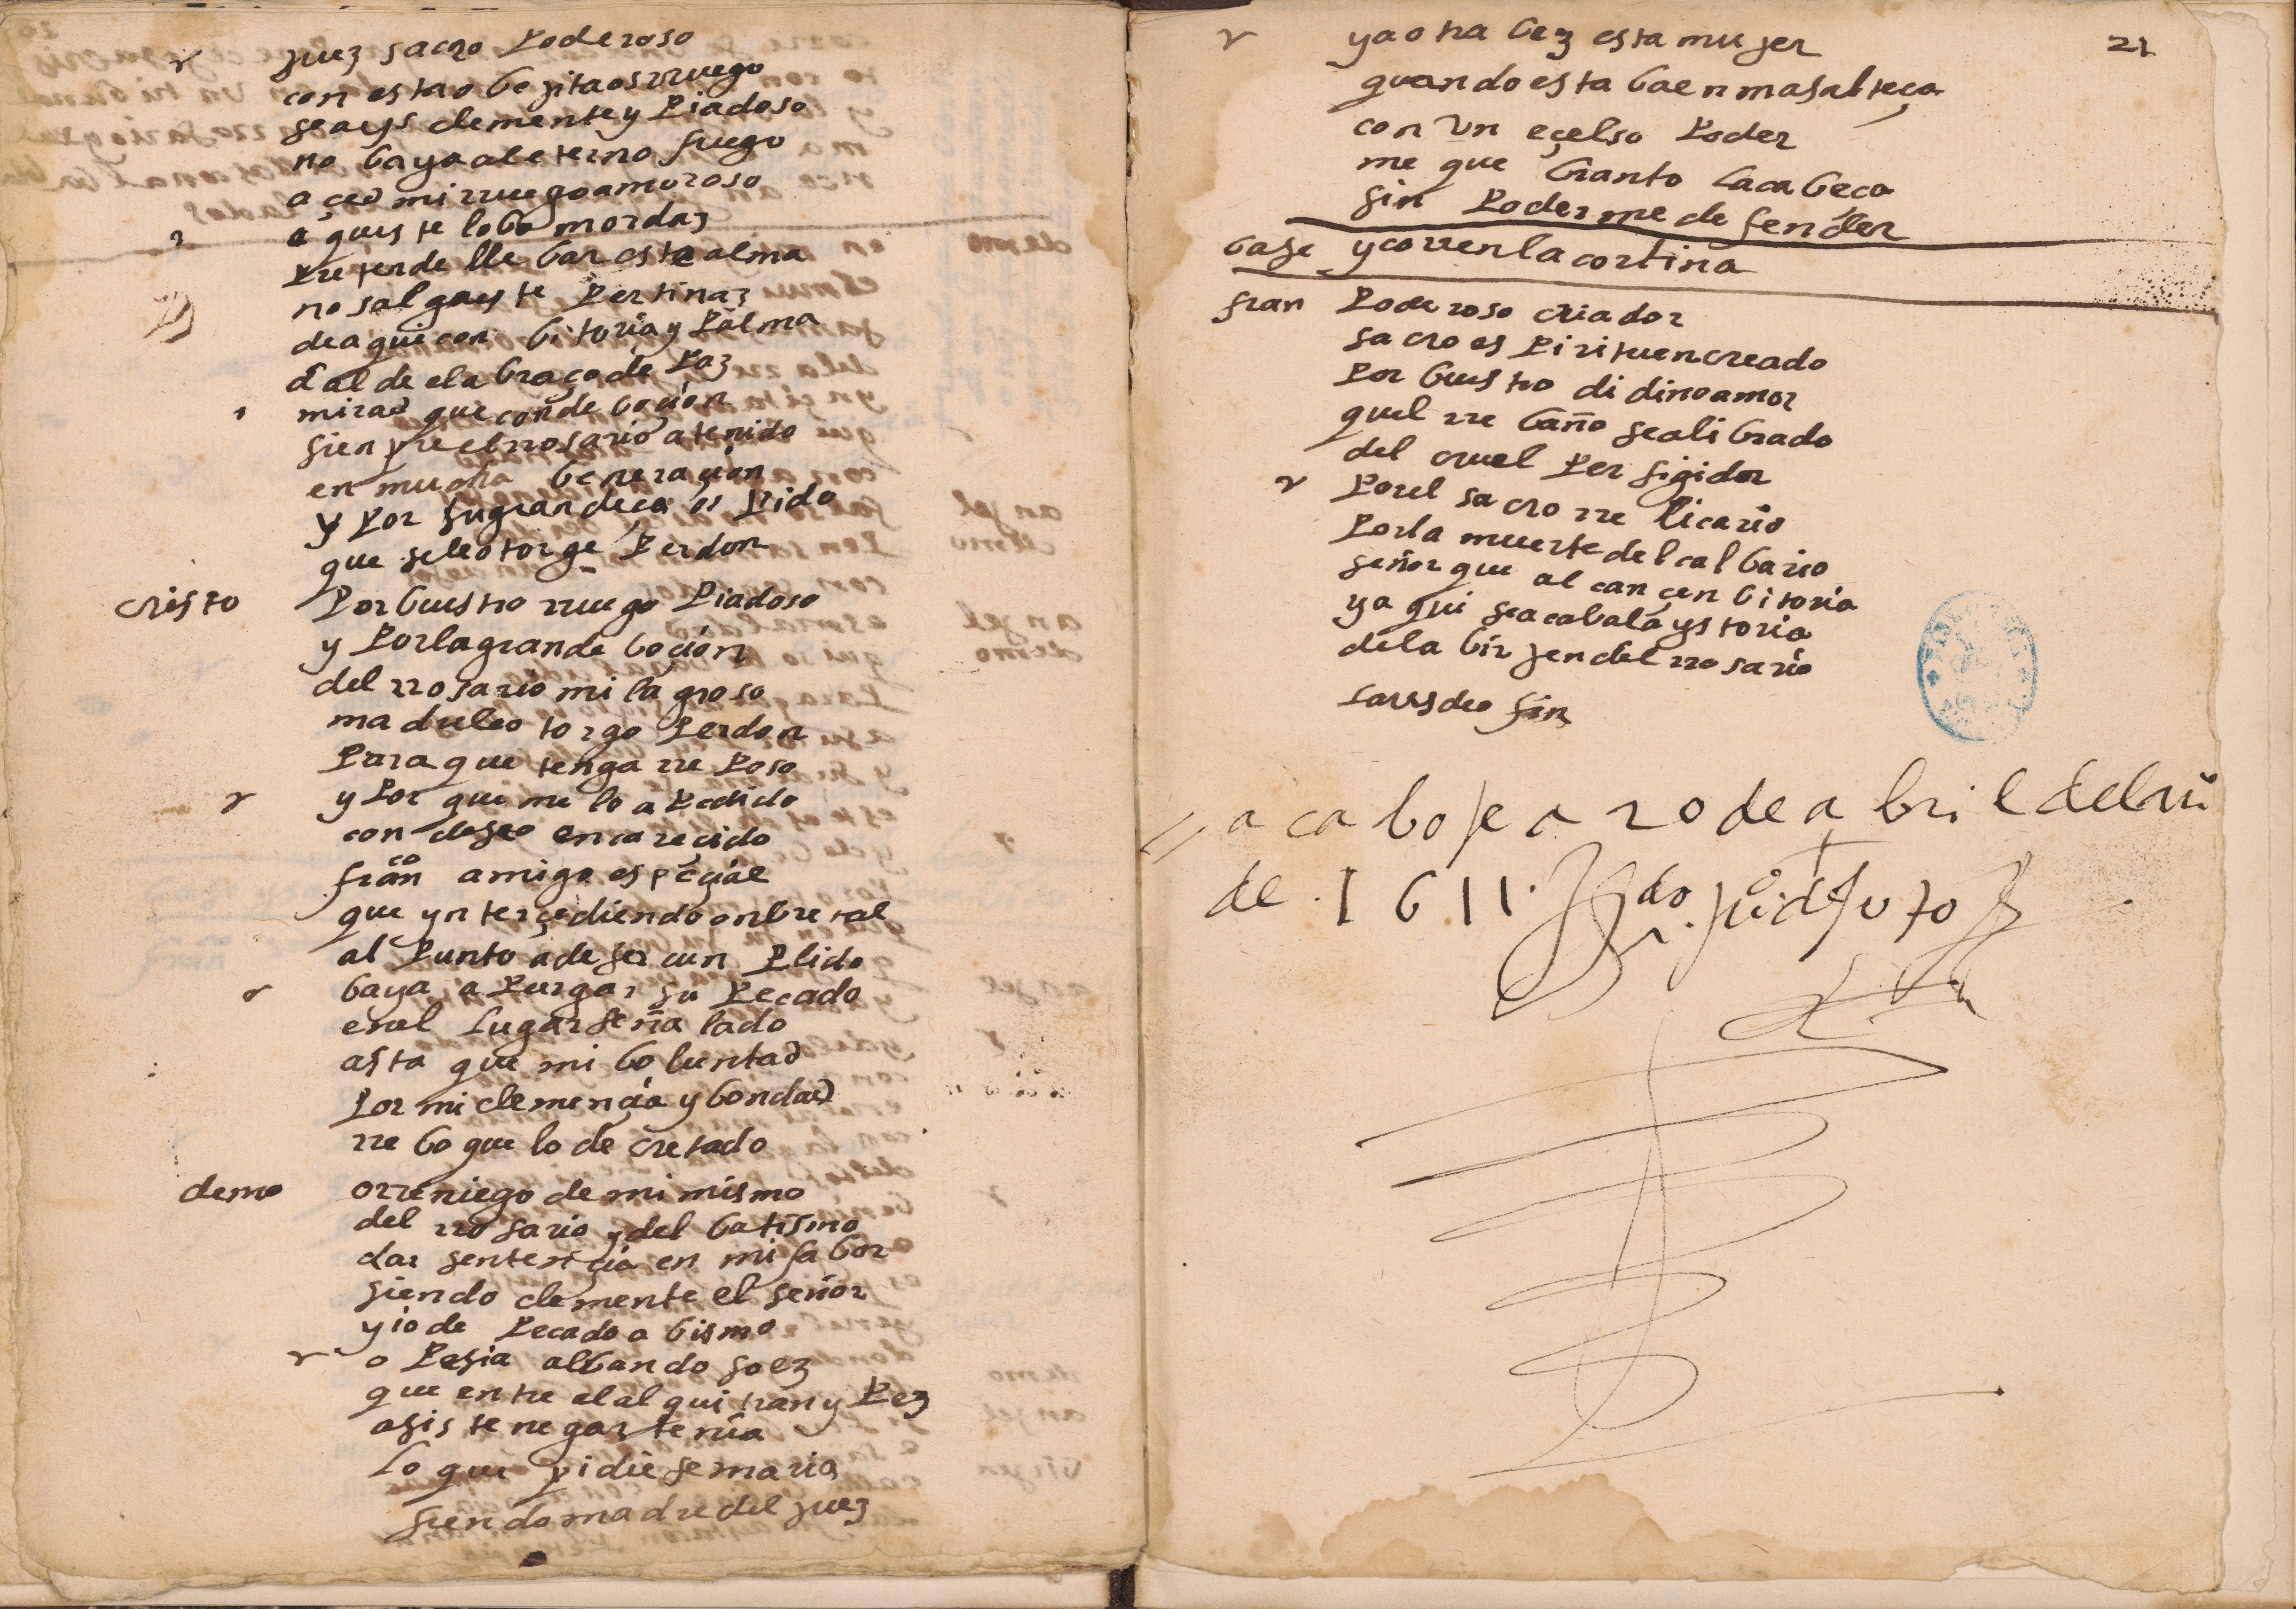 juez sacro Poderoso
con esta obejita os rruego
seays clemente y Piadoso
no baya al eterno fuego
açed mi rruego amoroso
aqueste lobo mordaz
Pretende llebar esta alma
no salga este Pertinaz
de aqui con bitoria y Palma
dalde el abraço de Paz
mirad que con deboçion
sienpre el rrosario a tenido
en mucha beneraçion
y Por su grandeça os Pido
que se le otorge Perdon
cristo Por buestro rruego Piadoso
y Por la gran deboçion
del rrosario milagroso
madre le otorgo Perdon
Para que tenga rreposo
y Por que me lo a Pedido
con deseo encareçido
franco amigo espeçial
que ynterçediendo onbre tal
al Punto a de ser cunplido
baya a Purgar su Pecado
en el lugar señalado
asta que mi boluntad
Por mi clemençia y bondad
rreboque lo decretado
demo o rreniego de mi mismo
del rrosario y del batismo
dar sentençia en mi fabor
siendo clemente el señor
y io de Pecado abismo
o Pesia al bando soez
que entre el alquitran y Pez
asiste negar tenia
lo que pidiese maria
siendo madre del juez
21
ya otra bez esta mujer
quando estaba en masalteça
con un eçelso Poder
me quebranto la cabeça
sin Poderme defender
base y corren la cortina
fran Poderoso criador
sacro espiritu encreado
Por buestro didino amor
quel rrebaño sea librado
del cruel Persigidor
Por el sacro rrelicario
Por la muerte del calbario
señor que alcançen bitoria
y aqui se acaba la ystoria
de la birjen del rrosario
laus deo fin
acabose a 20 de abril del añ
de 1611.